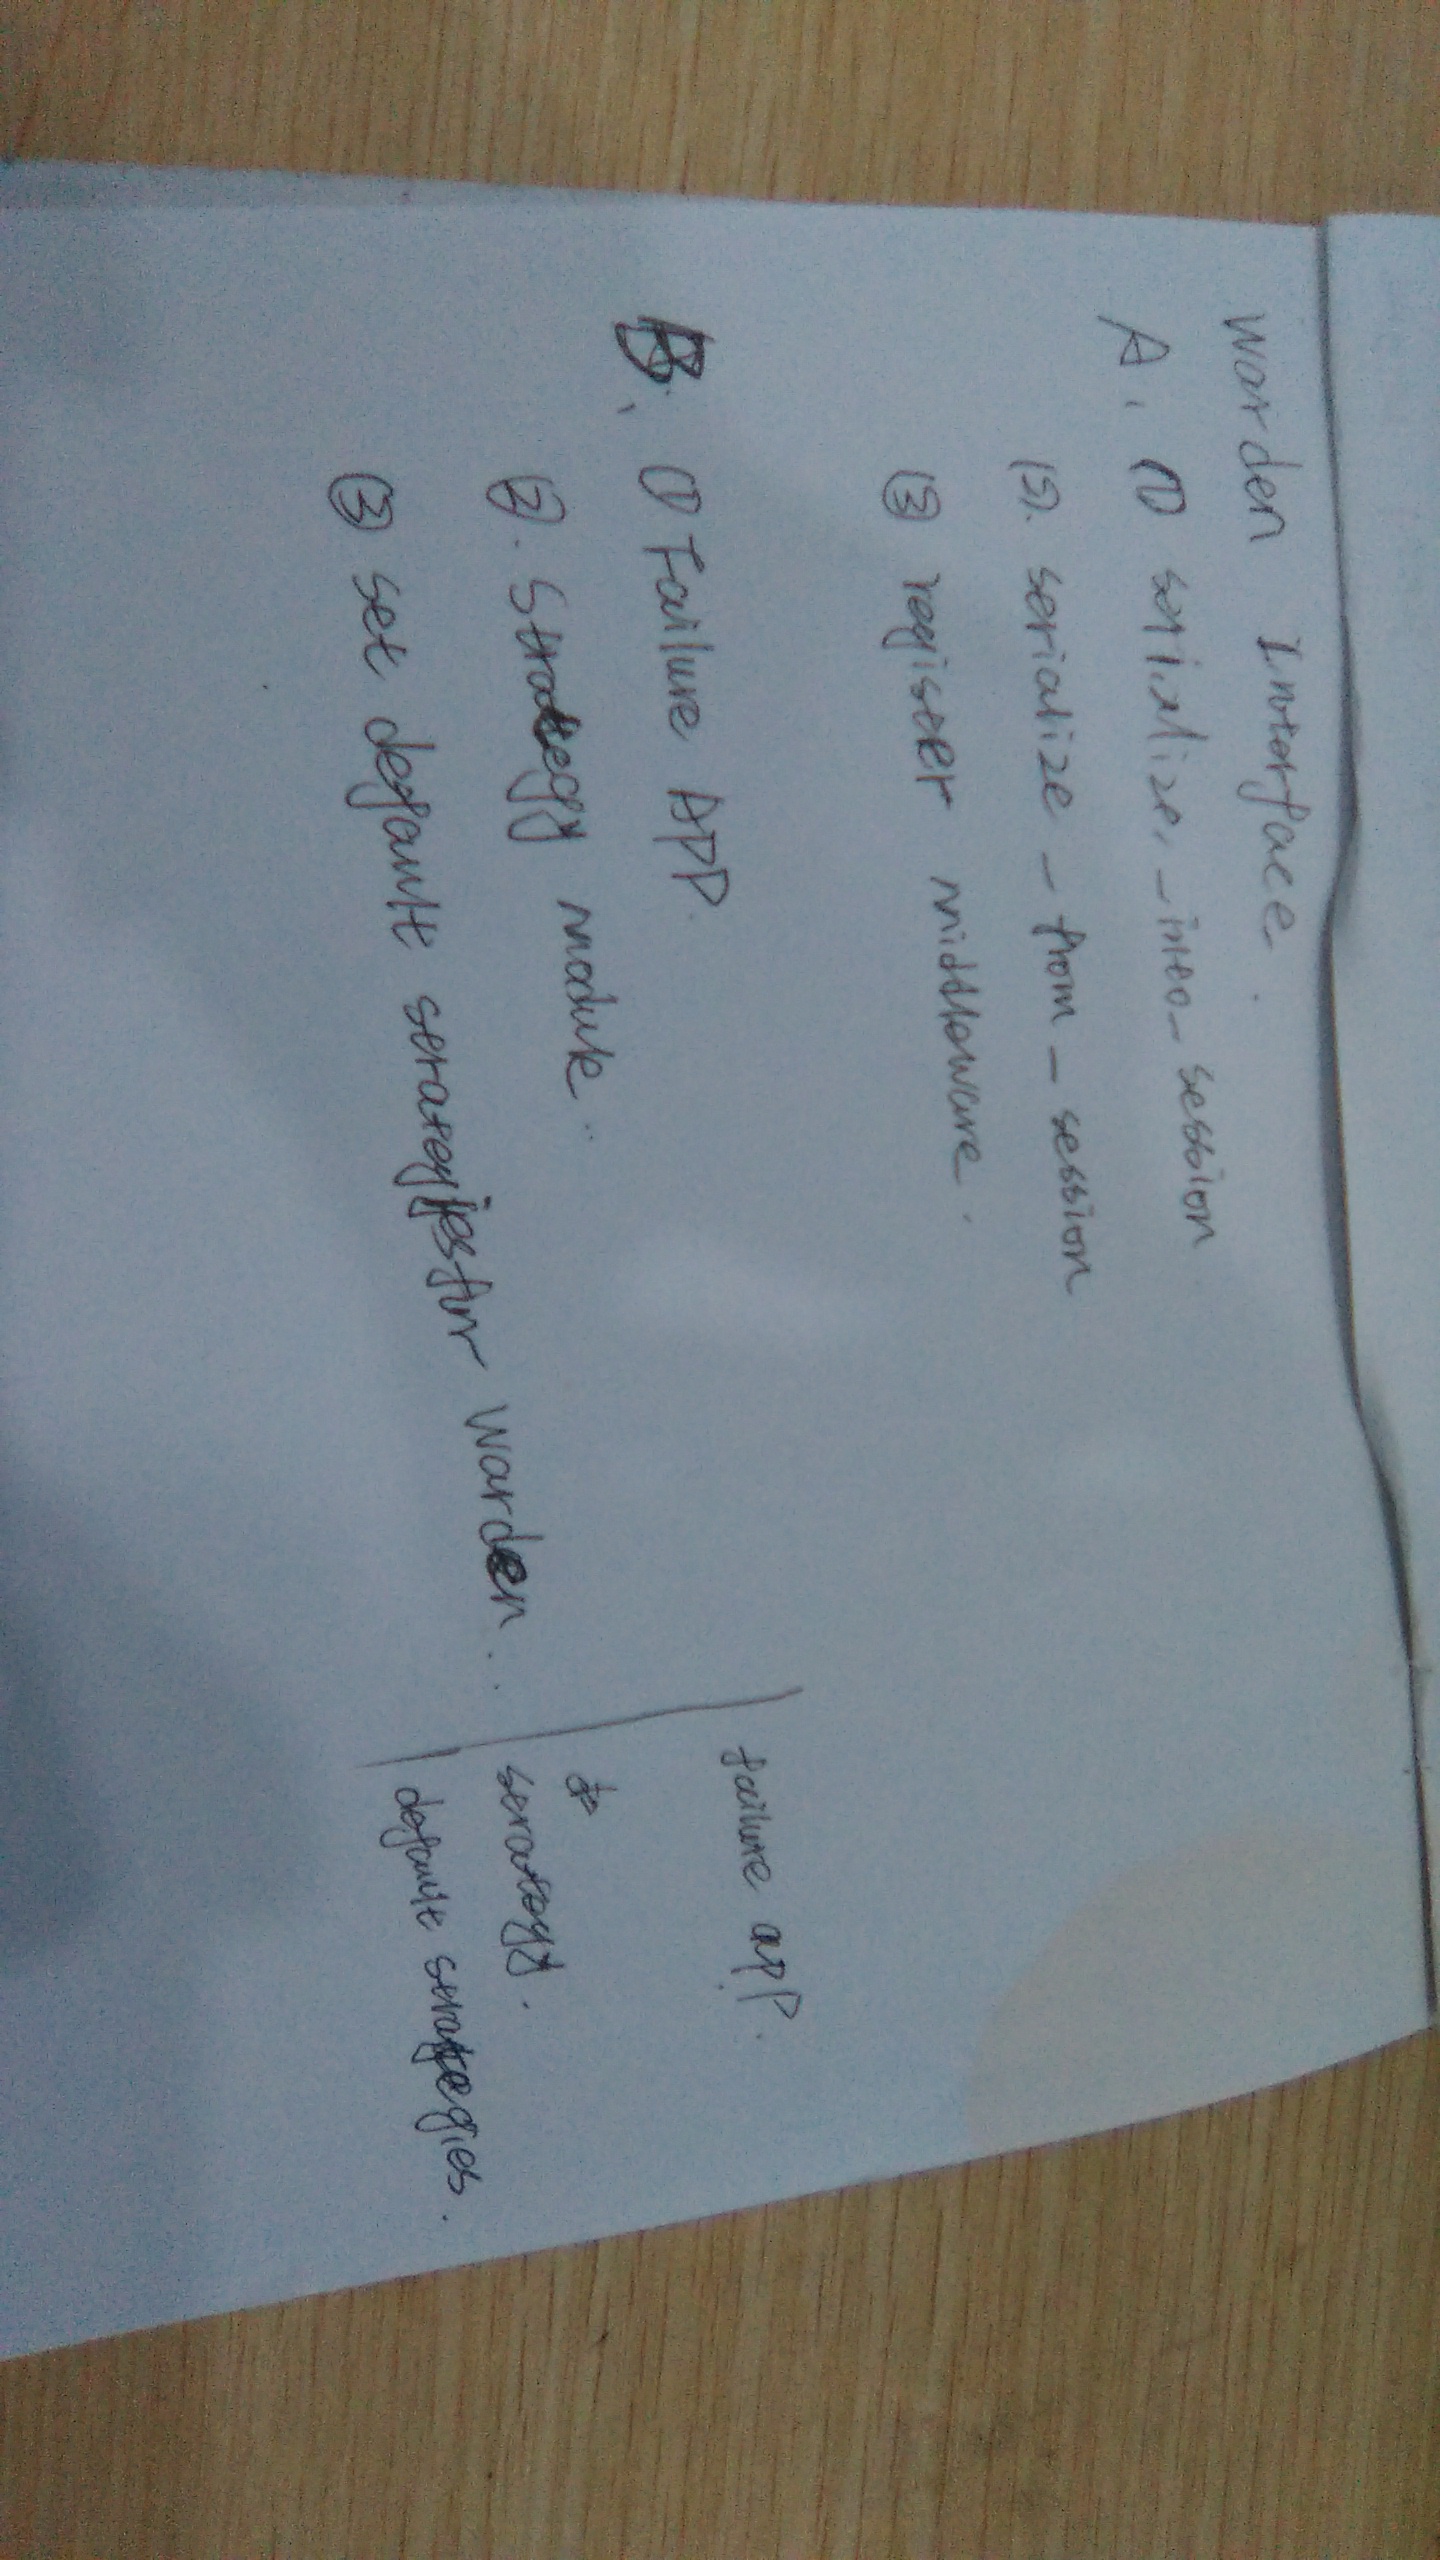 Warden Interface.
A. ① serialize_-into-session
②. serialize-from-session
③ register middleware.
B. ① Failure APP.
②. Strategy module..
③ set default strategies for warden..
failure app.
strategy.
default strategies.